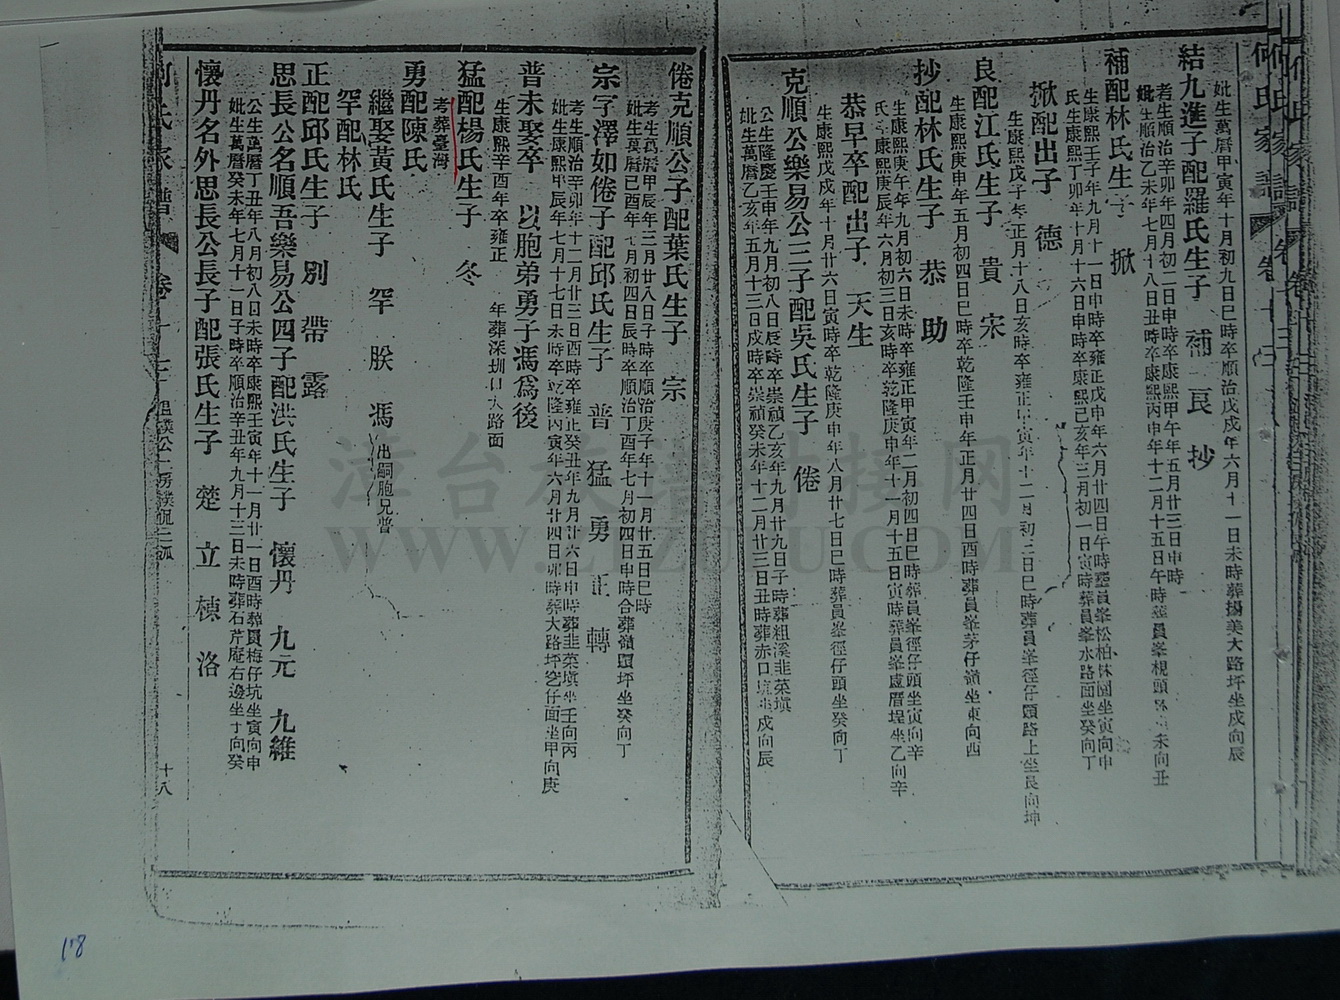 何氏家譜
妣生萬曆甲寅年十月初九日巳時卒順治戊戌年六月十一日未時葬揚美大路坪坐戌向辰
結九進子配羅氏生子 補 良 抄
考生順治辛卯年四月初二日寅時卒康熙甲午年五月廿三日申時
妣生順治乙未年七月十八日丑時卒康熙丙申年十二月十五日午時葬員峯梘頭 未向丑
補配林氏生子 掀
生康熙壬子年九月十一日申時卒雍正戊申年六月廿四日午時葬員峯松柏林園坐寅向申
氏生康熙丁卯年十月十六日申時卒康熙己亥年三月初一日寅時葬員峯水路面坐癸向丁
掀配出子 德
生康熙戊子年正月十八日亥時卒雍正甲寅年十二月初三日巳時葬員峯徑仔頭路上坐艮向坤
良配江氏生子 貴 宋
生康熙庚申年五月初四日巳時卒乾隆壬申年正月廿四日酉時葬員峯茅仔嶺坐東向西
抄配林氏生子 恭 助
生康熙庚午年九月初六日未時卒雍正甲寅年二月初四日巳時葬員峯徑仔頭坐寅向辛
氏生康熙庚辰年六月初三日亥時卒乾隆庚申年十一月十五日寅時葬員峯盧厝埕坐乙向辛
恭早卒配出子 天生
生康熙戊戌年十月廿六日寅時卒乾隆庚申年八月廿七日巳時葬員峯徑仔頭坐癸向丁
克順公樂易公三子配吳氏生子 倦
公生隆慶壬申年九月初八日辰時卒崇禎乙亥年九月廿九日子時葬粗溪韭菜塡
妣生萬曆乙亥年五月十三日戌時卒崇禎癸未年十二月廿三日丑時葬赤口坑坐戌向辰
倦克順公子配葉氏生子 宗
考生萬曆甲辰年三月廿八日子時卒順治庚子年十一月廿五日巳時
妣生萬曆己酉年七月初四日辰時卒順治丁酉年七月初四日申時合葬嶺頭坪坐癸向丁
宗字澤如倦子配邱氏生子 普 猛 勇 正 轉
考生順治辛卯年十二月廿三日酉時卒雍正癸丑年九月廿六日申時葬韭菜塡坐壬向丙
妣生康熙甲辰年七月十七日未時卒乾隆丙寅年六月廿四日卯時葬大路坪窓仔面坐甲向庚
普未娶卒 以胞弟勇子馮為後
生康熙辛酉年卒雍正 年葬深圳口大路面
猛配楊氏生子 冬
考葬臺灣
勇配陳氏
繼娶黃氏生子 罕 朕 馮 出嗣胞兄普
罕配林氏
正配邱氏生子 別 帶 露
思長公名順吾樂易公四子配洪氏生子 懷丹 九元 九維
公生萬曆丁丑年八月初八日未時卒康熙壬寅年十一月廿一日酉時葬員梅仔坑坐寅向申
妣生萬曆癸未年七月十一日子時卒順治辛丑年九月十三日未時葬石芹庵右邊坐丁向癸
懷丹名外思長公長子配張氏生子 楚 立 棟 洛
何氏家譜 卷 十八
漳台族譜對接网
WWW.ZTZUPU.COM
118